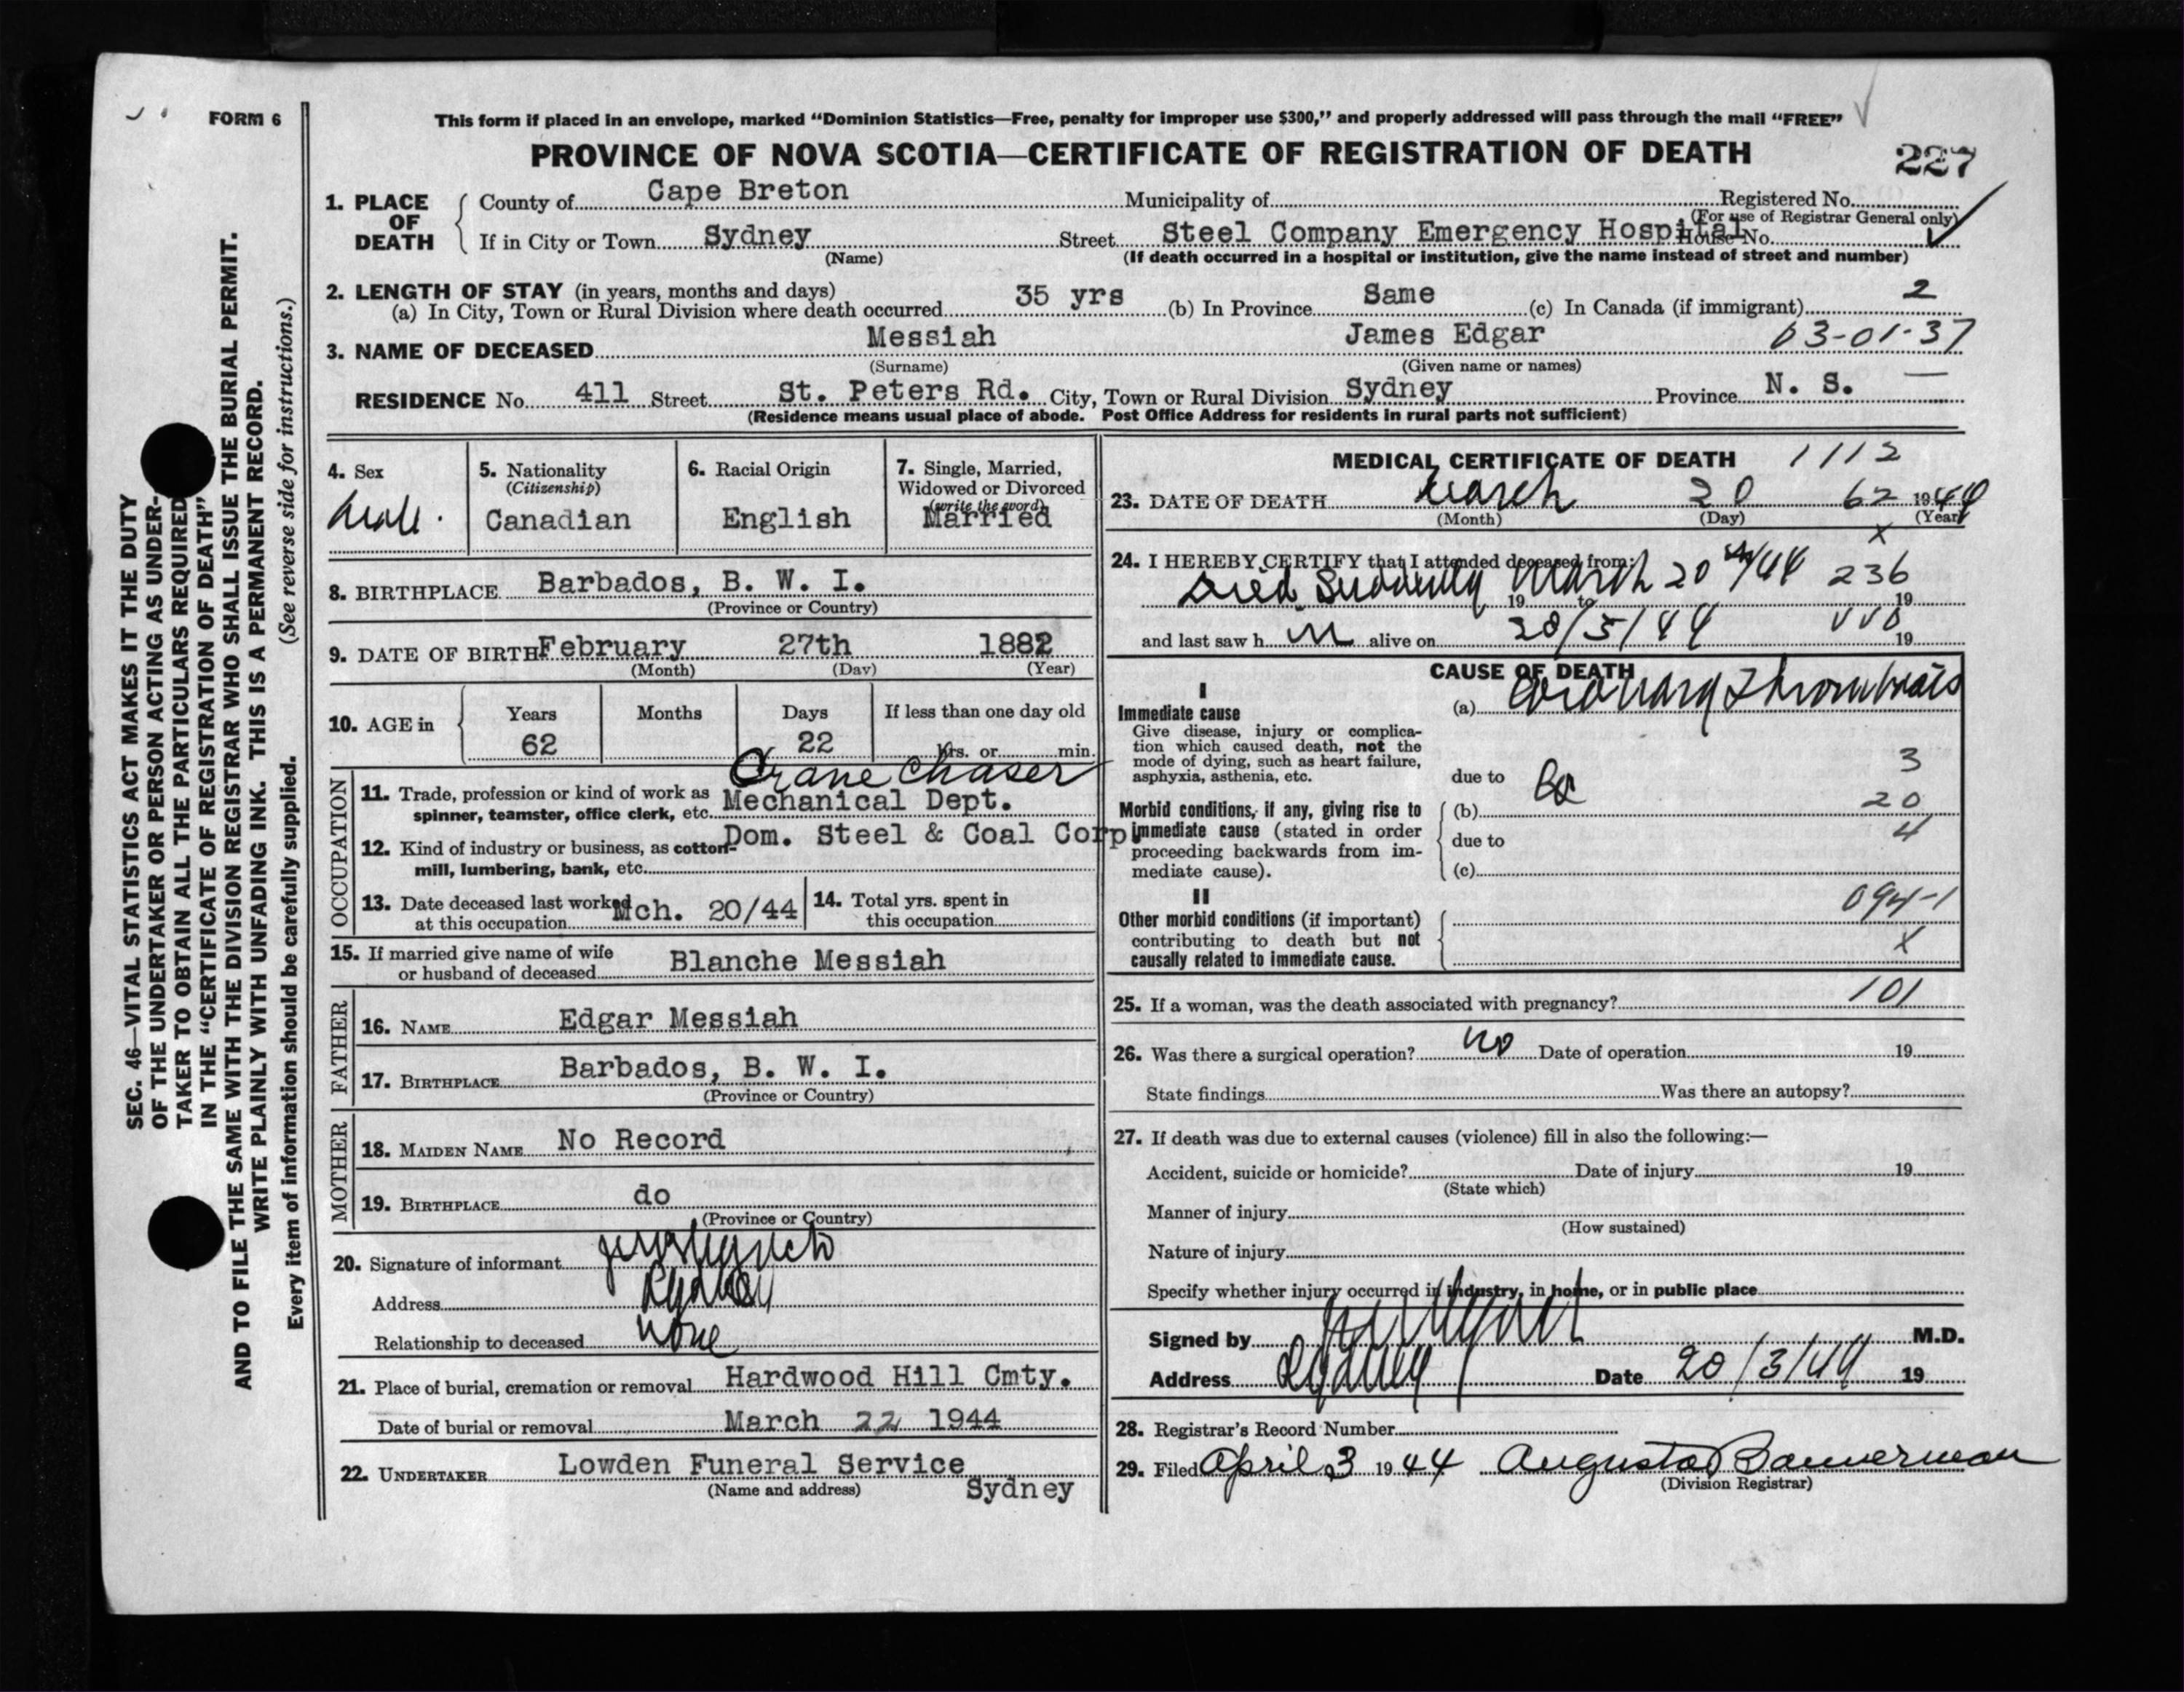 FORM 6
This form if placed in an envelope, marked “Dominion Statistics—Free, penalty for improper use $300,” and properly addressed will pass through the mail “FREE”
PROVINCE OF NOVA SCOTIA—CERTIFICATE OF REGISTRATION OF DEATH
227
1. PLACE OF DEATH
County of Cape Breton Municipality of Registered No.
(For use of Registrar General only)
If in City or Town Sydney Street Steel Company Emergency Hospital House No.
(Name) (If death occurred in a hospital or institution, give the name instead of street and number)
2. LENGTH OF STAY (in years, months and days)
(a) In City, Town or Rural Division where death occurred 35 yrs (b) In Province Same (c) In Canada (if immigrant) 2
3. NAME OF DECEASED Messiah James Edgar 03-01-37
(Surname) (Given name or names)
RESIDENCE No. 411 Street St. Peters Rd. City, Town or Rural Division Sydney Province N. S.
(Residence means usual place of abode. Post Office Address for residents in rural parts not sufficient)
4. Sex
Male.
5. Nationality
(Citizenship)
Canadian
6. Racial Origin
English
7. Single, Married,
Widowed or Divorced
(write the word)
Married
8. BIRTHPLACE Barbados, B. W. I.
(Province or Country)
9. DATE OF BIRTH February 27th 1882
(Month) (Day) (Year)
10. AGE in Years Months Days If less than one day old
62 22 hrs. or min.
OCCUPATION
Crane Chaser
11. Trade, profession or kind of work as
spinner, teamster, office clerk, etc. Mechanical Dept.
12. Kind of industry or business, as cotton- Dom. Steel & Coal Corp
mill, lumbering, bank, etc.
13. Date deceased last worked
at this occupation Mch. 20/44
14. Total yrs. spent in
this occupation
15. If married give name of wife
or husband of deceased Blanche Messiah
FATHER
16. NAME Edgar Messiah
17. BIRTHPLACE Barbados, B. W. I.
(Province or Country)
MOTHER
18. MAIDEN NAME No Record
19. BIRTHPLACE do
(Province or Country)
20. Signature of informant
Address Sydney
Relationship to deceased None
21. Place of burial, cremation or removal Hardwood Hill Cmty.
Date of burial or removal March 22 1944
22. UNDERTAKER Lowden Funeral Service
(Name and address) Sydney
MEDICAL CERTIFICATE OF DEATH 1112
23. DATE OF DEATH March 20 62 1944
(Month) (Day) (Year)
x
24. I HEREBY CERTIFY that I attended deceased from:
Died Suddenly March 20th/44 236
19 to 19
and last saw h m alive on 20/3/44 19
CAUSE OF DEATH
I
Immediate cause
Give disease, injury or complica-
tion which caused death, not the
mode of dying, such as heart failure,
asphyxia, asthenia, etc.
(a) Coronary Thrombosis
due to 3
Morbid conditions, if any, giving rise to
immediate cause (stated in order
proceeding backwards from im-
mediate cause).
(b) 20
due to 4
(c)
II
Other morbid conditions (if important)
contributing to death but not
causally related to immediate cause.
094-1
X
25. If a woman, was the death associated with pregnancy? 101
26. Was there a surgical operation? No Date of operation 19
State findings Was there an autopsy?
27. If death was due to external causes (violence) fill in also the following:—
Accident, suicide or homicide? Date of injury 19
(State which)
Manner of injury
(How sustained)
Nature of injury
Specify whether injury occurred in industry, in home, or in public place
Signed by M.D.
Address Sydney Date 20/3/44 19
28. Registrar’s Record Number
29. Filed April 3 1944 Augusta Bannerman
(Division Registrar)
SEC. 46—VITAL STATISTICS ACT MAKES IT THE DUTY
OF THE UNDERTAKER OR PERSON ACTING AS UNDER-
TAKER TO OBTAIN ALL THE PARTICULARS REQUIRED
IN THE “CERTIFICATE OF REGISTRATION OF DEATH”
AND TO FILE THE SAME WITH THE DIVISION REGISTRAR WHO SHALL ISSUE THE BURIAL PERMIT.
WRITE PLAINLY WITH UNFADING INK. THIS IS A PERMANENT RECORD.
Every item of information should be carefully supplied. (See reverse side for instructions.)